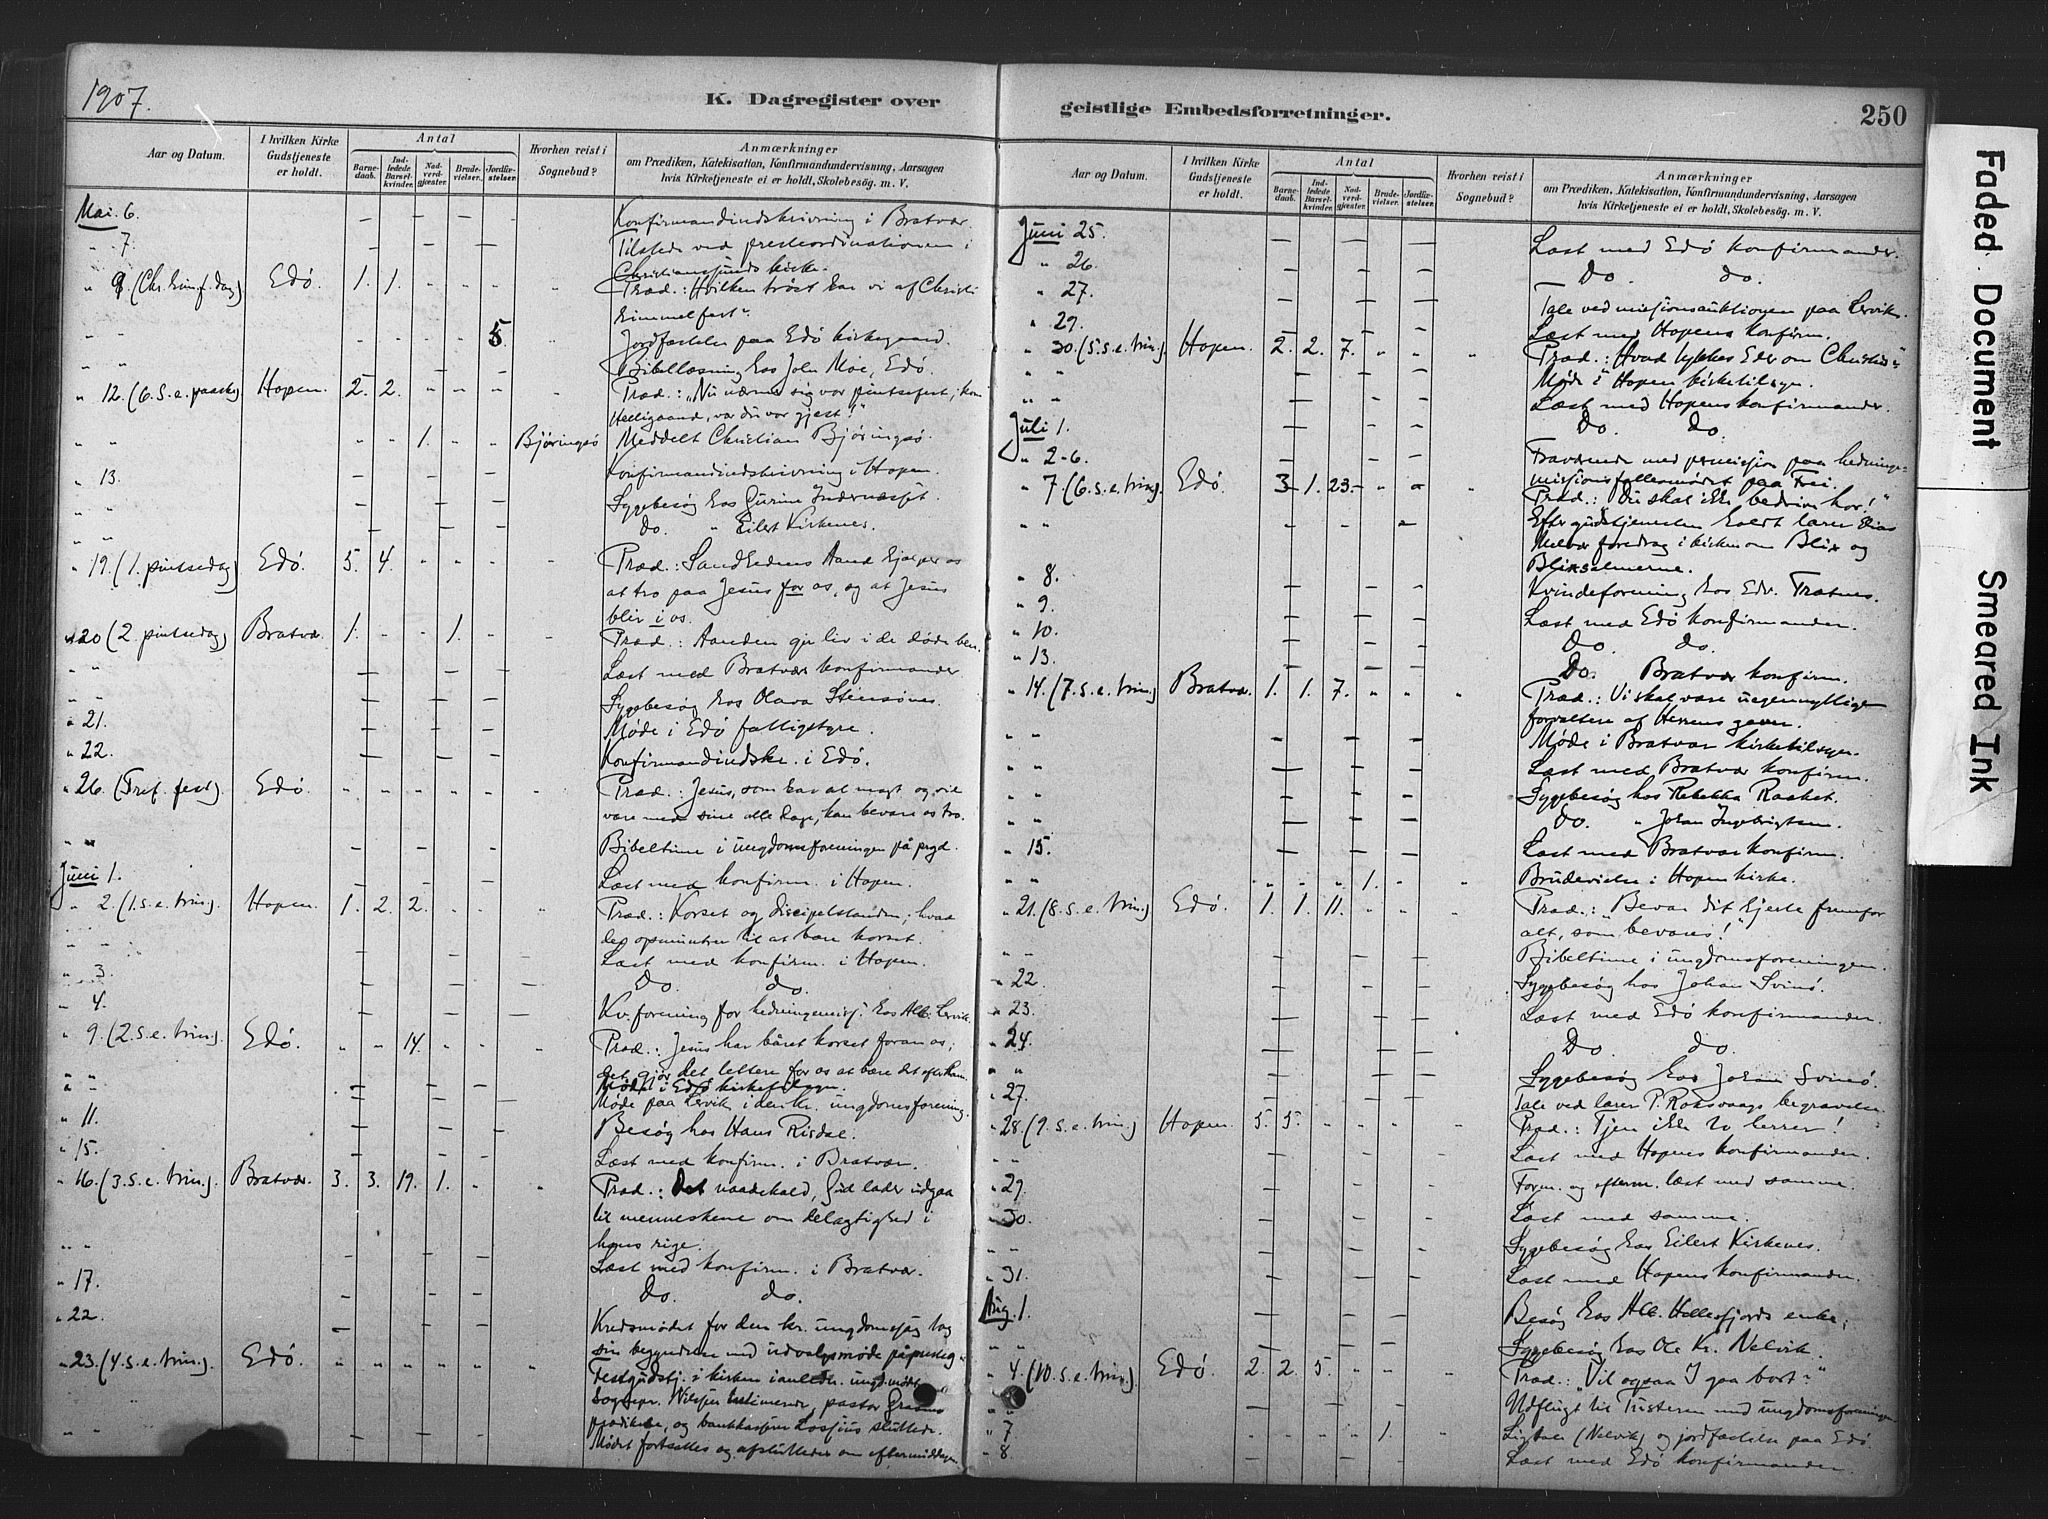 1907.
K. Dagregister over
Aar og Datum.
I hvilken Kirke Gudstjeneste er holdt.
Antal
Barnedaab.
Indledede Barselkvinder.
Nadverdgjæster.
Brudevielser.
Jordfæstelser.
Hvorhen reist i Sognebud?
Anmærkninger
om Prædiken, Katekisation, Konfirmandundervisning, Aarsagen
hvis Kirketjeneste ei er holdt, Skolebesøg. m. V.
Mai. 6. — — — — — Konfirmandindskrivning i Bratvær.
" 7. — — — — — Tilstede ved presteordinationen i
Christianssunds kirke.
" 9. (Chr. himf. dag) Edø. 1. 1. Præd.: Hvilken trøst har vi af Christi
himmelfart".
" " 5. Jordfæstelse paa Edø kirkegaard.
" " — — — — — Bibellæsning hos John Moe, Edø.
" 12. (6. S. e. paaske) Hopen. 2. 2. Præd.: "Nu nærmer sig vor pintsefest, kom
Helligaand, vær du vor gjest!"
" " 1. Bjøringsø Meddelt Christian Bjøringsø.
" 13. — — — — — Konfirmandindskrivning i Hopen.
" " — — — — — Sygebesøg hos Gurine Indernæsset.
" " — — — — — Do. " Eilert Kirkenes.
" 19. (1. pintsedag) Edø. 5. 4. Præd.: Sandhedens Aand hjælper os
at tro paa Jesus for os, og at Jesus
blir i os.
" 20 (2. pintsedag) Bratvær. 1. 1. Præd.: Aanden gir liv i de døde ben.
" " — — — — — Læst med Bratvær konfirmander
" " — — — — — Sygebesøg hos Olava Stensønes.
" 21. — — — — — Møde i Edø fattigstyre.
" 22. — — — — — Konfirmandindskr. i Edø.
" 26. (Tref. fest) Edø. Præd.: Jesus, som har al magt og vil
være med sine alle dage, kan bevare os tro.
" " — — — — — Bibeltime i ungdomsforeningen på prgd.
Juni 1. — — — — — Læst med konfirm. i Hopen.
" 2. (1. s. e. trin.) Hopen. 1. 2. 2. Præd.: Korset og discipelstanden; hvad
der opmuntrer til at bære korset.
" " — — — — — Læst med konfirm. i Hopen.
" 3. — — — — — Do. do.
" 4. — — — — — Kv.forening for hedningemis. hos Alb. Lervik.
" 9. (2. s. e. trin.) Edø. 14. Præd.: Jesus har båret korset foran os;
det gjør det lettere for os at bære det efter ham.
" " — — — — — Møde i Edø kirketilsyn.
" " — — — — — Møde paa Lervik i den kr. ungdomsforening.
" 11. — — — — — Besøg hos Hans Risdal.
" 15. — — — — — Læst med konfirm. i Bratvær.
" 16. (3. s. e. trin.) Bratvær. 3. 3. 19. 1. Præd.: Det naadekald, Gud lader udgaa
til menneskene om delagtighed i
hans rige.
" " — — — — — Læst med konfirm. i Bratvær.
" 17. — — — — — Do. do.
" 22. — — — — — Kredsmødet for den kr. ungdomssag tog
sin begyndelse med udvalgsmøde på prestg.
" 23. (4. s. e. trin.) Edø. Festgudstj. i kirken i anledn. ungd.mødet
Sognepr. Nilssen intimerede, pastor
prædikede, og bankkasserer Lossius sluttede.
" " — — — — — Mødet fortsattes og afsluttedes om eftermiddagen.
geistlige Embedsforretninger.
250
Aar og Datum.
I hvilken Kirke Gudstjeneste er holdt.
Antal
Barnedaab.
Indledede Barselkvinder.
Nadverdgjæster.
Brudevielser.
Jordfæstelser.
Hvorhen reist i Sognebud?
Anmærkninger
om Prædiken, Katekisation, Konfirmandundervisning, Aarsagen
hvis Kirketjeneste ei er holdt, Skolebesøg. m. V.
Juni 25. — — — — — Læst med Edø konfirmander.
" 26. — — — — — Do. do.
" 27. — — — — — Tale ved missionsauktionen paa Lervik.
" 29. — — — — — Læst med Hopens konfirm.
" 30. (5. s. e. trin.) Hopen. 2. 2. 7. Præd.: Hvad tykkes Eder om Christus"
" " — — — — — Møde i Hopen kirketilsyn.
" " — — — — — Læst med Hopens konfirmander.
Juli 1. — — — — — Do. do.
" 2-6. — — — — — Fraværende med permission paa hedninge-
missionsfællesmødet paa Frei.
" 7. (6. s. e. trin.) Edø. 3 1. 23. Præd.: Du skal ikke bedrive hor!"
" " — — — — — Efter gudstjenesten holdt lærer Elias
Melvær foredrag i kirken om Blix og
Blixsalmerne.
" 8. — — — — — Kvindeforening hos Edv. Trætnes.
" 9. — — — — — Læst med Edø konfirmander.
" 10. — — — — — Do. do.
" 13. — — — — — Do. Bratvær konfirm.
" 14. (7. s. e. trin.) Bratvær. 1. 1. 7. Præd.: Vi skal være uegennyttige
forvaltere af Herrens gaver.
" " — — — — — Møde i Bratvær kirketilsyn.
" " — — — — — Læst med Bratvær konfirm.
" " — — — — — Sygebesøg hos Rebekka Rasket.
" " — — — — — Do. " Johan Ingebrigtsen.
" 15. — — — — — Læst med Bratvær konfirm.
" " 1. Brudevielse i Hopen kirke.
" 21. (8. s. e. trin.) Edø. 1. 1. 11. Præd.: "Bevar dit hjerte fremfor
alt, som bevares!"
" " — — — — — Bibeltime i ungdomsforeningen.
" 22. — — — — — Sygebesøg hos Johan Svinø.
" 23. — — — — — Læst med Edø konfirmander.
" 24. — — — — — Do. do.
" " — — — — — Sygebesøg hos Johan Svinø.
" 27. — — — — — Tale ved lærer P. Roksvaags begravelse
" 28. (9. s. e. trin.) Hopen. 5. 5. Præd.: Tjen ikke to herrer!
" " — — — — — Læst med Hopens konfirmander.
" 29. — — — — — Form. og efterm. læst med samme.
" 30. — — — — — Læst med samme.
" " — — — — — Sygebesøg hos Eilert Kirkenes.
" 31. — — — — — Læst med Hopens konfirmander.
Aug. 1. — — — — — Besøg hos Alb. Hallesfjords enke;
" " — — — — — Sygebesøg hos Ole Kr. Nelvik.
" 4. (10. s. e. trin.) Edø. 2. 2. 5. Præd.: "Vil ogsaa I gaa bort"
" " — — — — — Udflugt til Tusteren med ungdomsforeningen
" 7 1. Ligtale (Nelvik) og jordfæstelse paa Edø.
" 8. — — — — — Læst med Edø konfirmander.
Faded Document
Smeared Ink